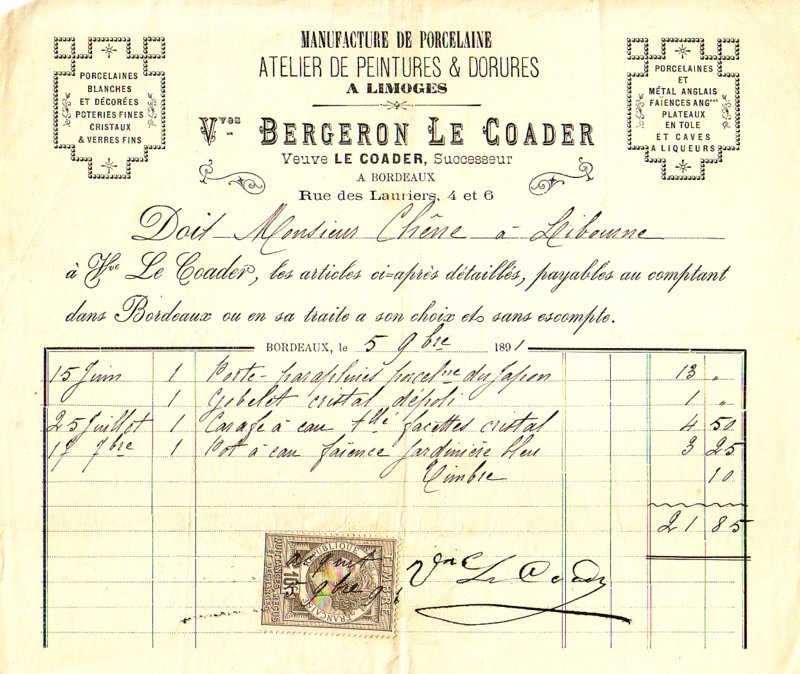 MANUFACTURE DE PORCELAINE
ATELIER DE PEINTURES & DORURES
A LIMOGES
Vves BERGERON LE COADER
Veuve LE COADER, Successeur
A BORDEAUX
Rue des Lauriers, 4 et 6
PORCELAINES
BLANCHES
ET DÉCORÉES
POTERIES FINES
CRISTAUX
& VERRES FINS
PORCELAINES
ET
MÉTAL ANGLAIS
FAÏENCES ANGses
PLATEAUX
EN TOLE
ET CAVES
A LIQUEURS
Doit Monsieur Chêne à Libourne
à Vve Le Coader, les articles ci-après détaillés, payables au comptant
dans Bordeaux ou en sa traite a son choix et sans escompte.
BORDEAUX, le 5 9bre 1891
15 Juin 1 Porte-parapluies porcelne du Japon 13 "
1 Gobelet cristal dépoli 1 "
25 Juillet 1 Carafe à eau tllé facettes cristal 4 50
17 7bre 1 Pot à eau faïence Jardinière bleu 3 25
Timbre 10
21 85
RÉPUBLIQUE FRANÇAISE
TIMBRE
QUITTANCES REÇUS
10c
5 9bre 91
Vve Le Coader